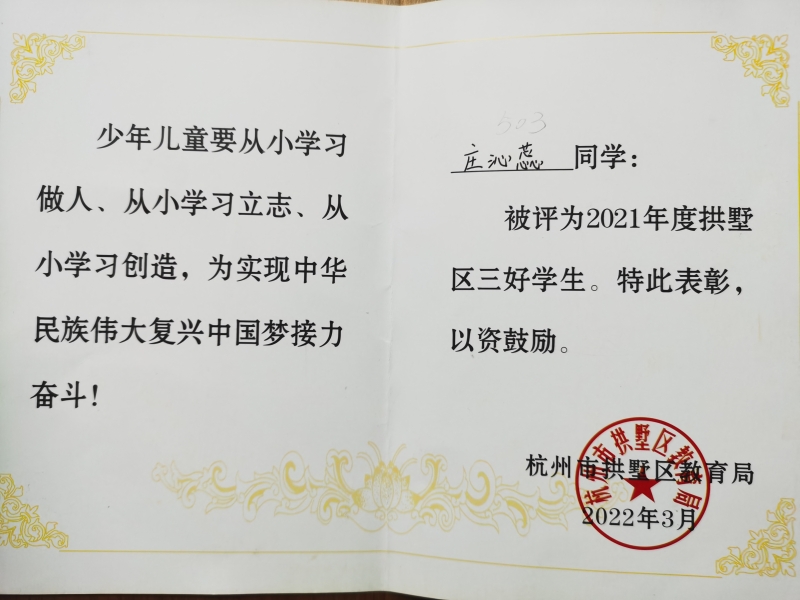 少年儿童要从小学习
做人、从小学习立志、从
小学习创造，为实现中华
民族伟大复兴中国梦接力
奋斗！
503
庄沁蕊 同学：
被评为2021年度拱墅
区三好学生。特此表彰，
以资鼓励。
杭州市拱墅区教育局
2022年3月
杭州市拱墅区教育局